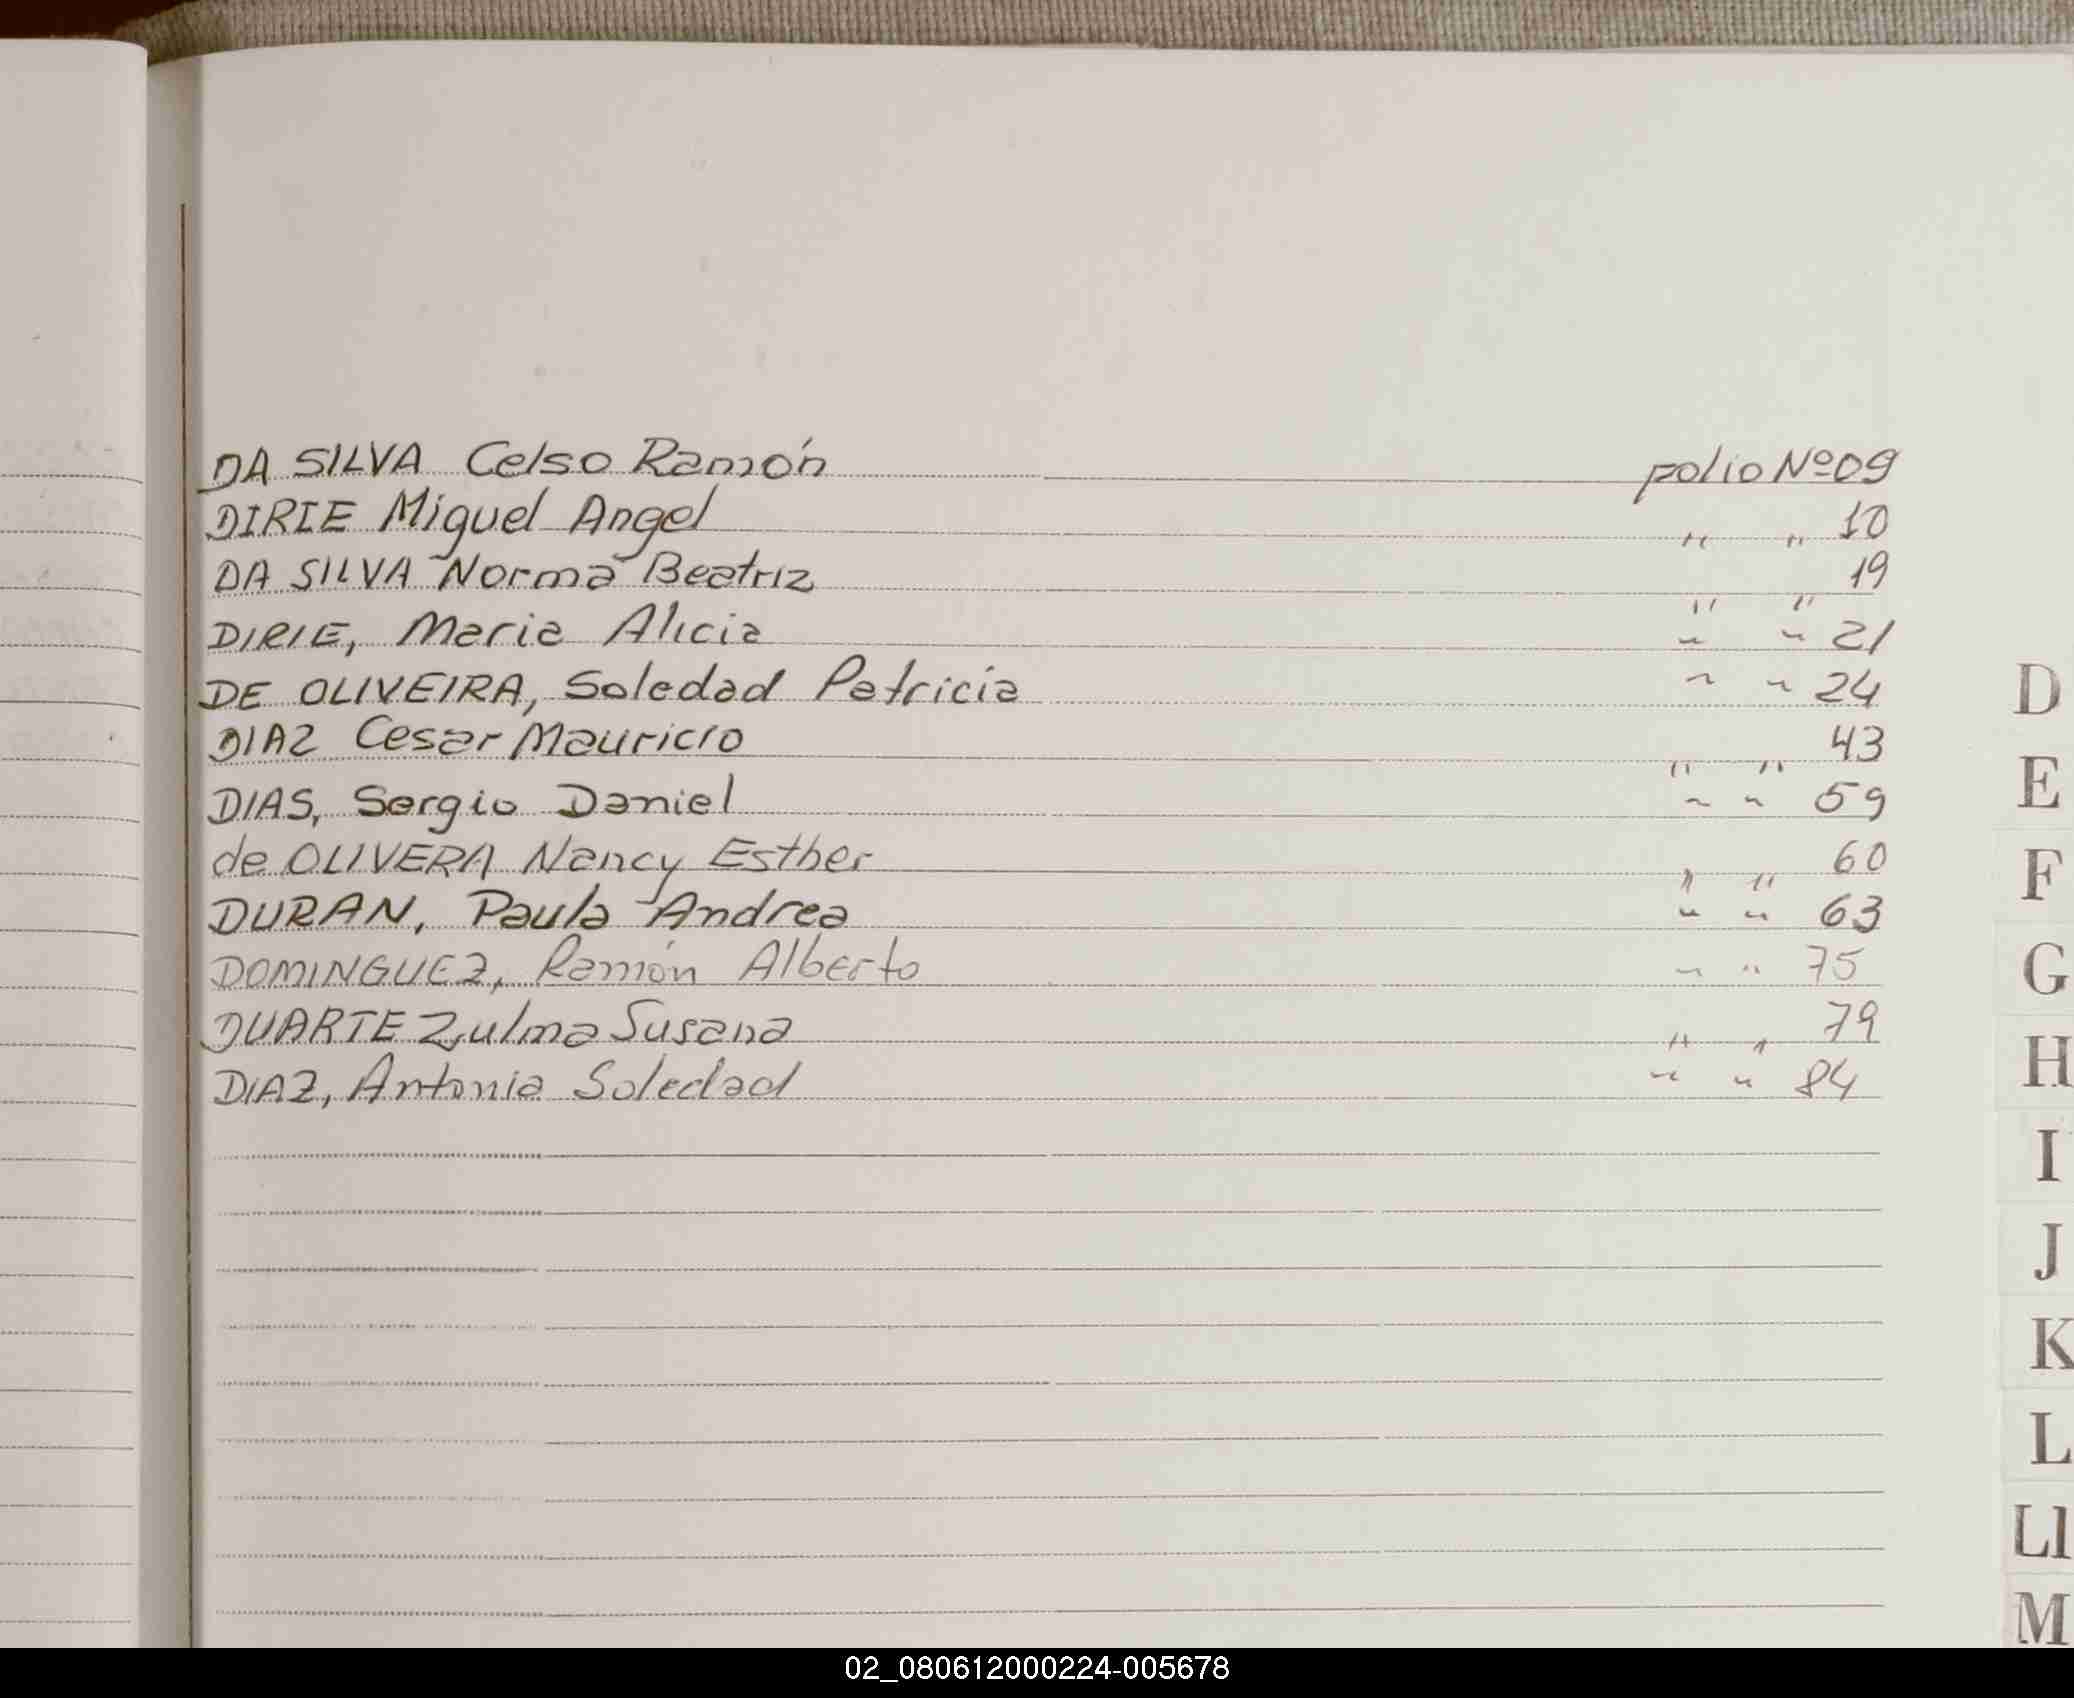 DA SILVA Celso Ramón folio Nº 09
DIRIE Miguel Angel " " 10
DA SILVA Norma Beatriz " " 19
DIRIE, Maria Alicia " " 21
DE OLIVEIRA, Soledad Patricia " " 24
DIAZ Cesar Mauricio " " 43
DIAS, Sergio Daniel " " 59
de OLIVERA Nancy Esther " " 60
DURAN, Paula Andrea " " 63
DOMINGUEZ, Ramón Alberto " " 75
DUARTE Zulma Susana " " 79
DIAZ, Antonia Soledad " " 84
D
E
F
G
H
I
J
K
L
Ll
M
02_080612000224-005678